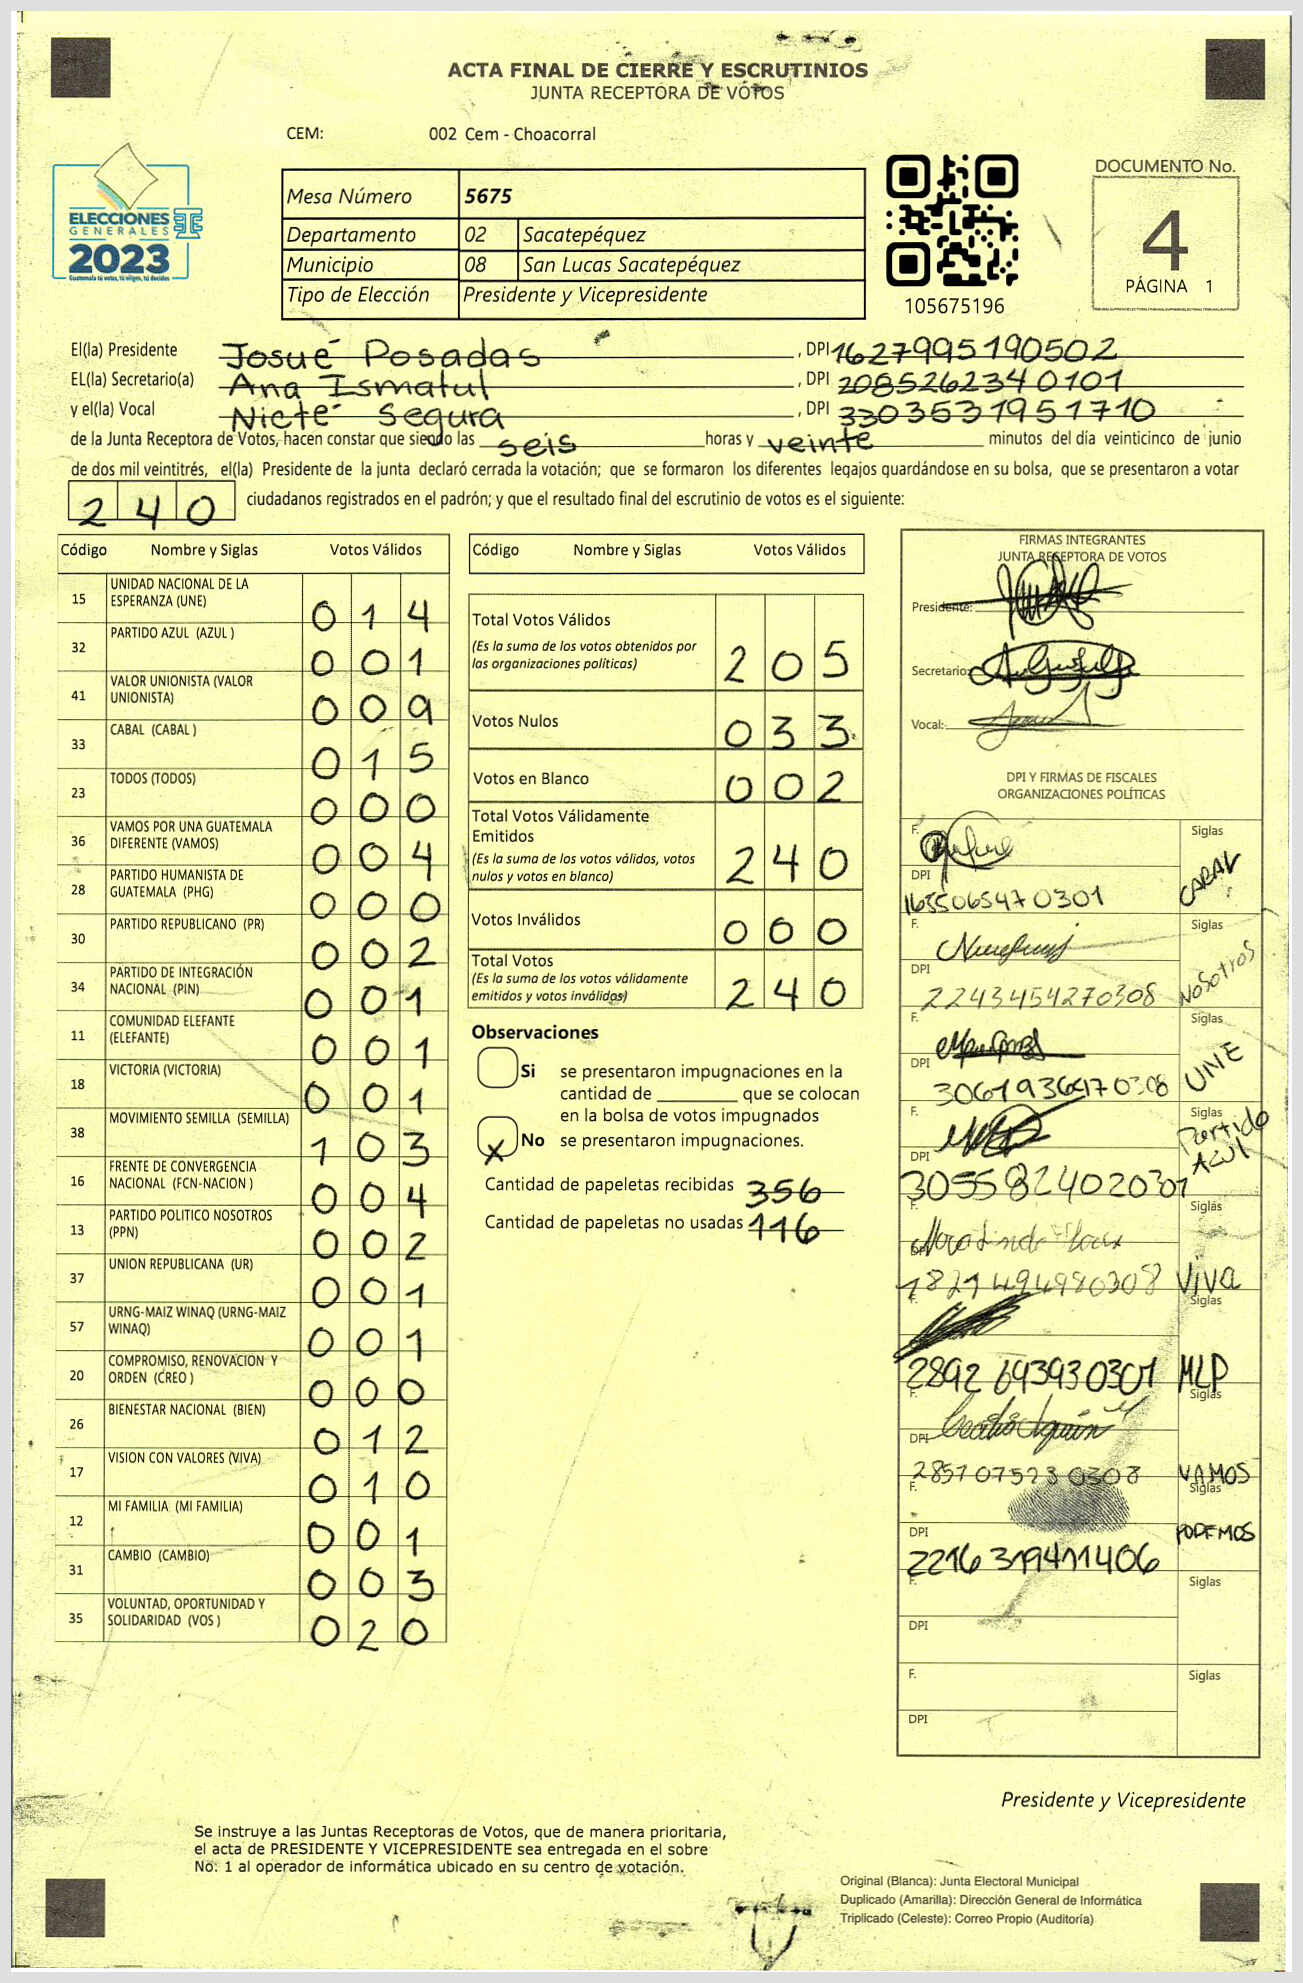 ACTA FINAL DE CIERRE Y ESCRUTINIOS
JUNTA RECEPTORA DE VOTOS
CEM: 002 Cem - Choacorral
ELECCIONES
GENERALES
2023
Guatemala tú votas, tú eliges, tú decides
Mesa Número 5675
Departamento 02 Sacatepéquez
Municipio 08 San Lucas Sacatepéquez
Tipo de Elección Presidente y Vicepresidente
105675196
DOCUMENTO No.
4
PÁGINA 1
El(la) Presidente Josué Posadas, DPI 1627995190502
EL(la) Secretario(a) Ana Ismatul, DPI 2085262340101
y el(la) Vocal Nicté Segura, DPI 3303531951710
de la Junta Receptora de Votos, hacen constar que siendo las seis horas y veinte minutos del día veinticinco de junio
de dos mil veintitrés, el(la) Presidente de la junta declaró cerrada la votación; que se formaron los diferentes legajos guardándose en su bolsa, que se presentaron a votar
240 ciudadanos registrados en el padrón; y que el resultado final del escrutinio de votos es el siguiente:
Código Nombre y Siglas Votos Válidos
15 UNIDAD NACIONAL DE LA ESPERANZA (UNE) 014
32 PARTIDO AZUL (AZUL ) 001
41 VALOR UNIONISTA (VALOR UNIONISTA) 009
33 CABAL (CABAL ) 015
23 TODOS (TODOS) 000
36 VAMOS POR UNA GUATEMALA DIFERENTE (VAMOS) 004
28 PARTIDO HUMANISTA DE GUATEMALA (PHG) 000
30 PARTIDO REPUBLICANO (PR) 002
34 PARTIDO DE INTEGRACIÓN NACIONAL (PIN) 001
11 COMUNIDAD ELEFANTE (ELEFANTE) 001
18 VICTORIA (VICTORIA) 001
38 MOVIMIENTO SEMILLA (SEMILLA) 103
16 FRENTE DE CONVERGENCIA NACIONAL (FCN-NACION ) 004
13 PARTIDO POLITICO NOSOTROS (PPN) 002
37 UNION REPUBLICANA (UR) 001
57 URNG-MAIZ WINAQ (URNG-MAIZ WINAQ) 001
20 COMPROMISO, RENOVACION Y ORDEN (CREO ) 000
26 BIENESTAR NACIONAL (BIEN) 012
17 VISION CON VALORES (VIVA) 010
12 MI FAMILIA (MI FAMILIA) 001
31 CAMBIO (CAMBIO) 003
35 VOLUNTAD, OPORTUNIDAD Y SOLIDARIDAD (VOS ) 020
Código Nombre y Siglas Votos Válidos
Total Votos Válidos
(Es la suma de los votos obtenidos por
las organizaciones políticas) 205
Votos Nulos 033
Votos en Blanco 002
Total Votos Válidamente
Emitidos
(Es la suma de los votos válidos, votos
nulos y votos en blanco) 240
Votos Inválidos 000
Total Votos
(Es la suma de los votos válidamente
emitidos y votos inválidos) 240
Observaciones
Si se presentaron impugnaciones en la
cantidad de ________ que se colocan
en la bolsa de votos impugnados
X No se presentaron impugnaciones.
Cantidad de papeletas recibidas 356
Cantidad de papeletas no usadas 116
FIRMAS INTEGRANTES
JUNTA RECEPTORA DE VOTOS
Presidente:
Secretario:
Vocal:
DPI Y FIRMAS DE FISCALES
ORGANIZACIONES POLÍTICAS
F. Siglas
DPI 1635065470301
F. Siglas NOSOTROS
DPI 2243454270308
F. Siglas UNE
DPI
F. Siglas Partido AZUL
DPI 3055824020301
F. Siglas VIVA
DPI 1821494980308
F. Siglas MLP
2892693930301
F. Siglas VAMOS
DPI 2857075230308
F. Siglas PODEMOS
DPI 2216319411406
F. Siglas
DPI
F. Siglas
DPI
Presidente y Vicepresidente
Se instruye a las Juntas Receptoras de Votos, que de manera prioritaria,
el acta de PRESIDENTE Y VICEPRESIDENTE sea entregada en el sobre
No. 1 al operador de informática ubicado en su centro de votación.
Original (Blanca): Junta Electoral Municipal
Duplicado (Amarilla): Dirección General de Informática
Triplicado (Celeste): Correo Propio (Auditoría)